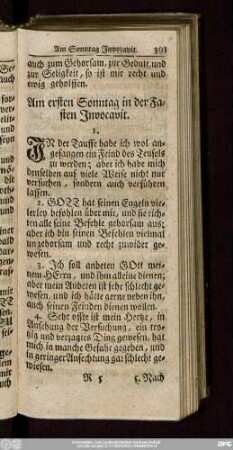 Am Sonntag Invocavit. 393
auch zum Gehorsam, zur Gedult, und
zur Seligkeit, so ist mir recht und
ewig geholffen.
Am ersten Sonntag in der Fa-
sten Invocavit.
1.
IN der Tauffe habe ich wol an-
gefangen ein Feind des Teufels
zu werden; aber ich habe mich
denselben auf viele Weise nicht nur
versuchen, sondern auch verführen
lassen.
2. GOTT hat seinen Engeln vie-
lerley befohlen über mir, und sie rich-
ten alle seine Befehle gehorsam aus;
aber ich bin seinen Befehlen vielmal
ungehorsam und recht zuwider ge-
wesen.
3. Ich soll anbeten GOtt mei-
nem HErrn, und ihm alleine dienen;
aber mein Anbeten ist sehr schlecht ge-
wesen, und ich hätte gerne neben ihm,
auch seinen Feinden dienen wollen.
4. Sehr offte ist mein Hertze, in
Ansehung der Versuchung, ein tro-
tzig und verzagtes Ding gewesen, hat
mich in manche Gefahr gegeben, und
in geringer Anfechtung gar schlecht ge-
wiesen.
R 5 5. Nach